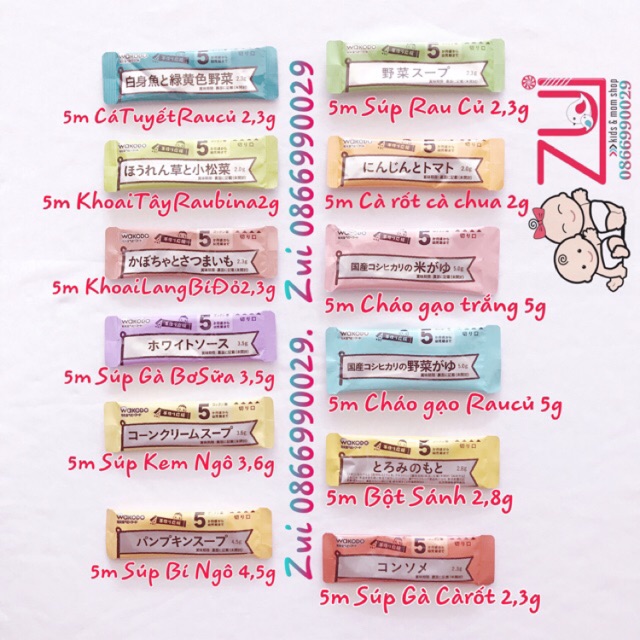 wakodo 5 切り口
白身魚と緑黄色野菜 2.3g
5m CáTuyếtRaucủ 2,3g
ほうれん草と小松菜 2.0g
5m KhoaiTâyRaubina2g
wakodo 5 切り口
かぼちゃとさつまいも 2.3g
5m KhoaiLangBíĐỏ2,3g
wakodo 5 切り口
ホワイトソース 3.5g
5m Súp Gà BơSữa 3,5g
wakodo 5 切り口
コーンクリームスープ 3.6g
5m Súp Kem Ngô 3,6g
wakodo 5 切り口
パンプキンスープ 4.5g
5m Súp Bí Ngô 4,5g
Zui 0866990029. Zui 0866990029
wakodo 5 切り口
野菜スープ 2.3g
5m Súp Rau Củ 2,3g
wakodo 5 切り口
にんじんとトマト 2.0g
5m Cà rốt cà chua 2g
wakodo 5 切り口
国産コシヒカリの米がゆ 5.0g
5m Cháo gạo trắng 5g
wakodo 5 切り口
国産コシヒカリの野菜がゆ 5.0g
5m Cháo gạo Raucủ 5g
wakodo 5 切り口
とろみのもと 2.8g
5m Bột Sánh 2,8g
wakodo 5 切り口
コンソメ 2.3g
5m Súp Gà Càrốt 2,3g
Zui
>>>kids & mom shop
0866990029